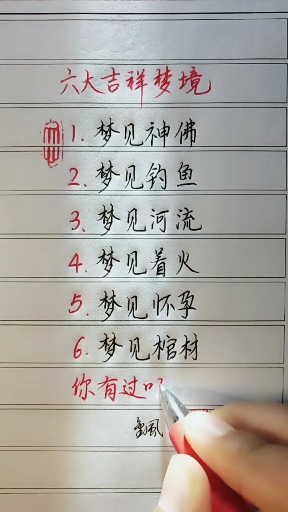 六大吉祥梦境
1. 梦见神佛
2. 梦见钓鱼
3. 梦见河流
4. 梦见着火
5. 梦见怀孕
6. 梦见棺材
你有过